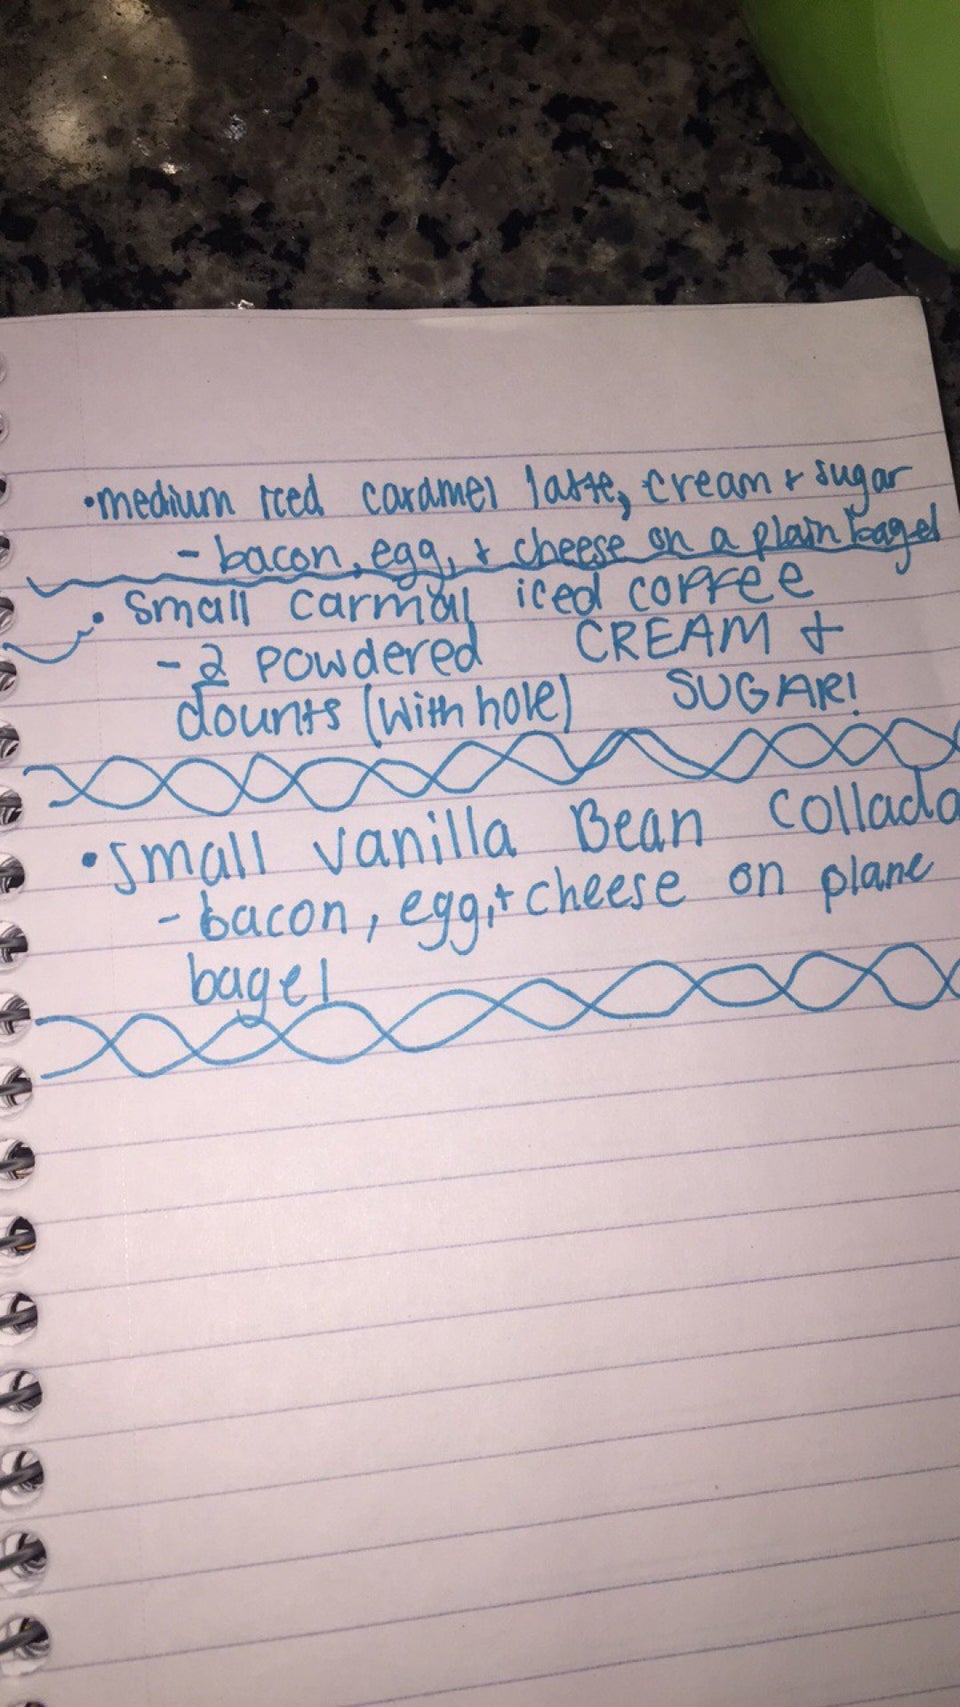 •medium iced caramel latte, cream + sugar
- bacon, egg, + cheese on a plain bagel
• small carmall iced coffee
- 2 powdered CREAM +
dounts (with hole) SUGAR!
• small vanilla Bean Collada
- bacon, egg, + cheese on plane
bagel